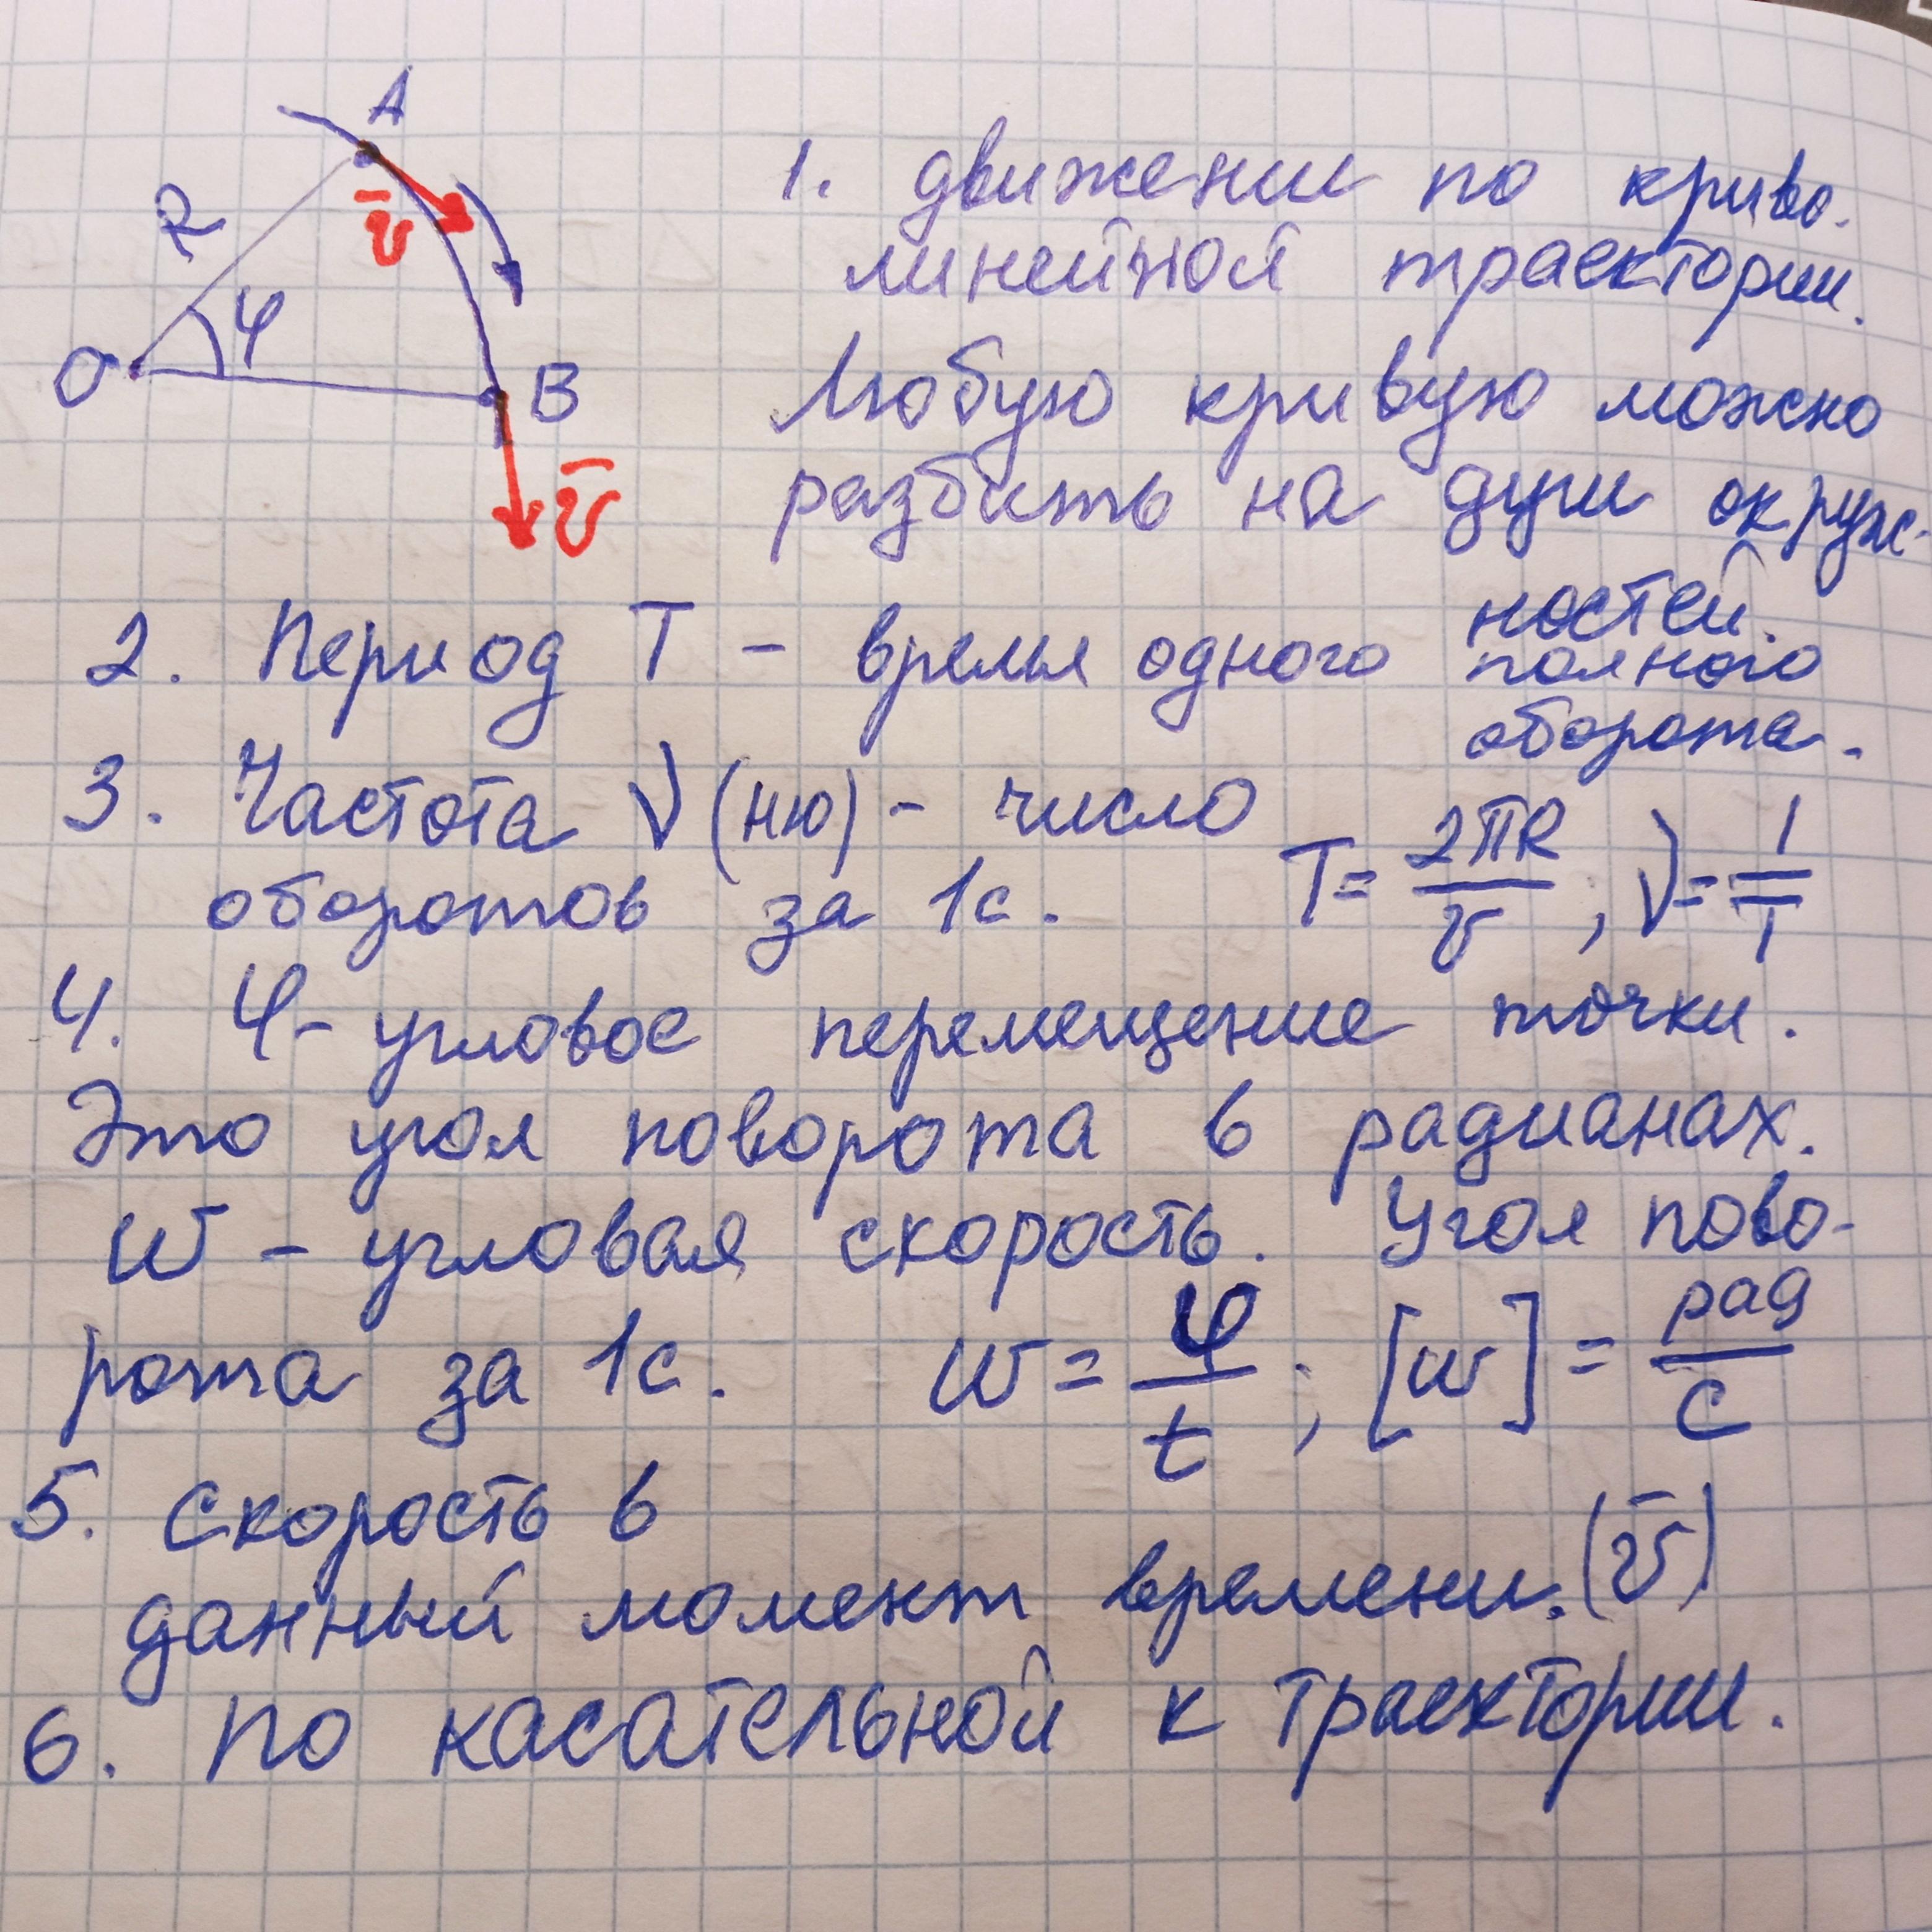 A
R
v̄
φ
O
B
v̄
1. движении по криво-
линейной траектории.
Любую кривую можно
разбить на дуги окруж-
ностей.
2. Период T - время одного полного
оборота.
3. Частота ν (ню) - число
оборотов за 1с. T = 2πR/v ; ν = 1/T
4. φ - угловое перемещение точки.
Это угол поворота в радианах.
ω - угловая скорость. Угол пово-
рота за 1с. ω = φ/t ; [ω] = рад/с
5. Скорость в
данный момент времени. (v̄)
6. По касательной к траектории.